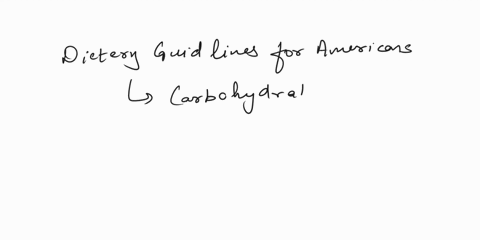 Dietery Guid lines for Americans
↳ Carbohydral